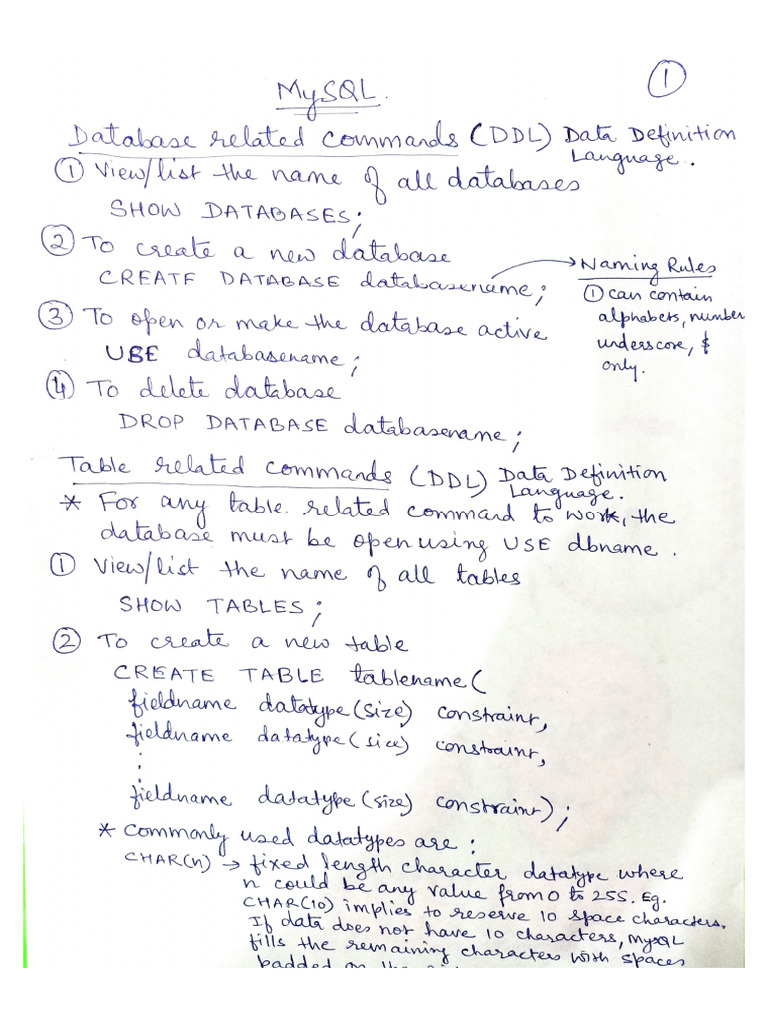 ①
MySQL.
Database related commands (DDL) Data Definition
Language.
① View/list the name of all databases
SHOW DATABASES;
② To create a new database
CREATE DATABASE databasename;
→ Naming Rules
① can contain
alphabets, number
underscore, $
only.
③ To open or make the database active
USE databasename;
④ To delete database
DROP DATABASE databasename;
Table related commands (DDL) Data Definition
Language.
* For any table related command to work, the
database must be open using USE dbname.
① View/list the name of all tables
SHOW TABLES;
② To create a new table
CREATE TABLE tablename(
fieldname datatype(size) constraint,
fieldname datatype(size) constraint,
:
:
fieldname datatype(size) constraint);
* Commonly used datatypes are:
CHAR(n) → fixed length character datatype where
n could be any value from 0 to 255. Eg.
CHAR(10) implies to reserve 10 space characters.
If data does not have 10 characters, MySQL
fills the remaining characters with spaces
padded on the